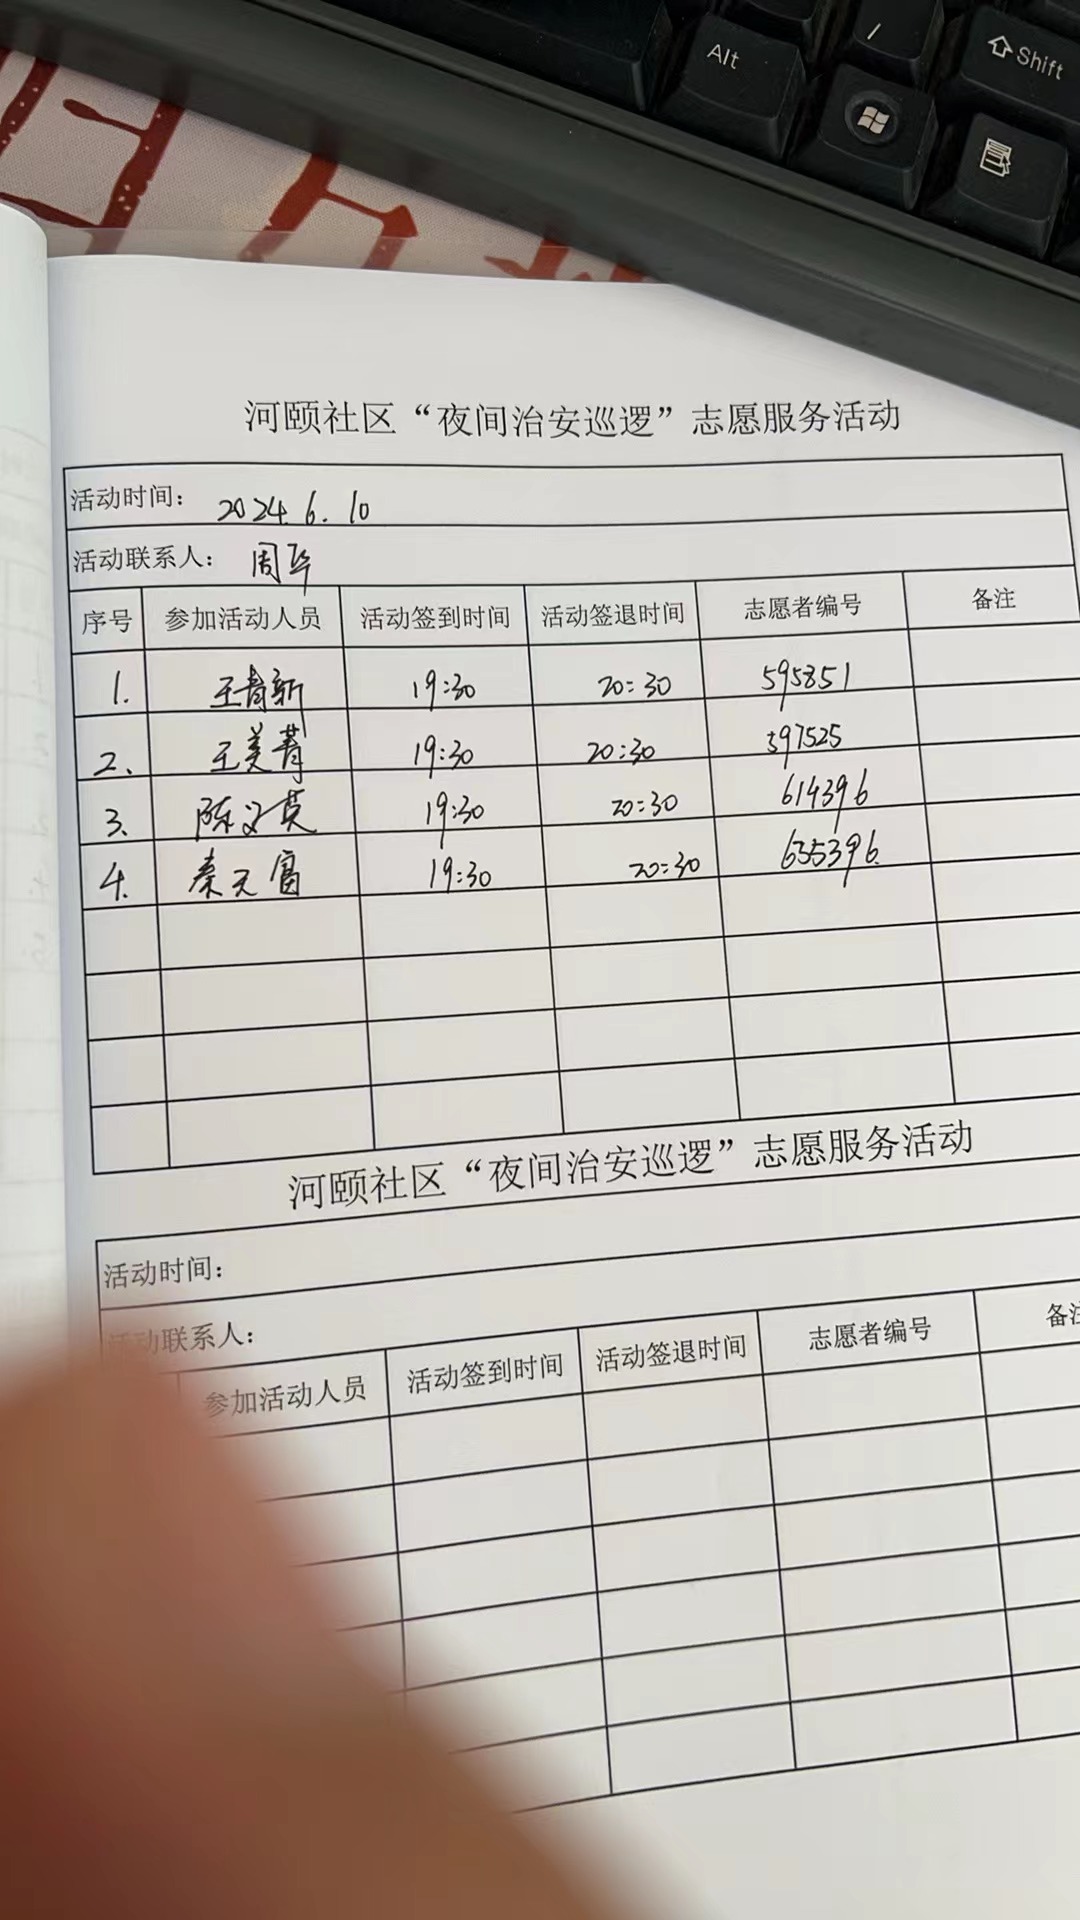 Alt
/
Shift
河颐社区“夜间治安巡逻”志愿服务活动
活动时间： 2024.6.10
活动联系人： 周华
序号 参加活动人员 活动签到时间 活动签退时间 志愿者编号 备注
1. 王青新 19:30 20:30 595851
2. 王美菁 19:30 20:30 597525
3. 陈文英 19:30 20:30 614396
4. 秦天富 19:30 20:30 635396
河颐社区“夜间治安巡逻”志愿服务活动
活动时间：
活动联系人：
参加活动人员 活动签到时间 活动签退时间 志愿者编号 备注